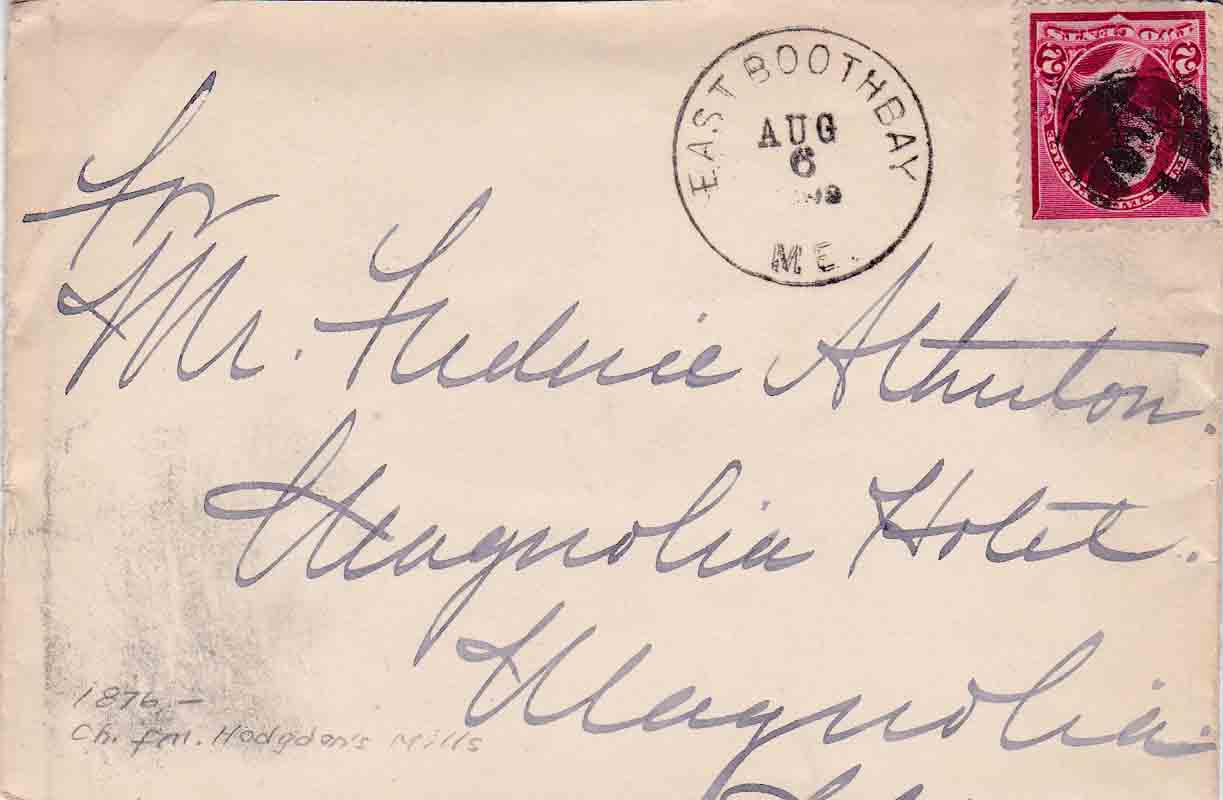 EAST BOOTHBAY
AUG
6
ME.
2 2
For
Mr. Frederic Atherton.
Magnolia Hotel.
Magnolia.
1876 –
Ch. fm. Hodgdon's Mills